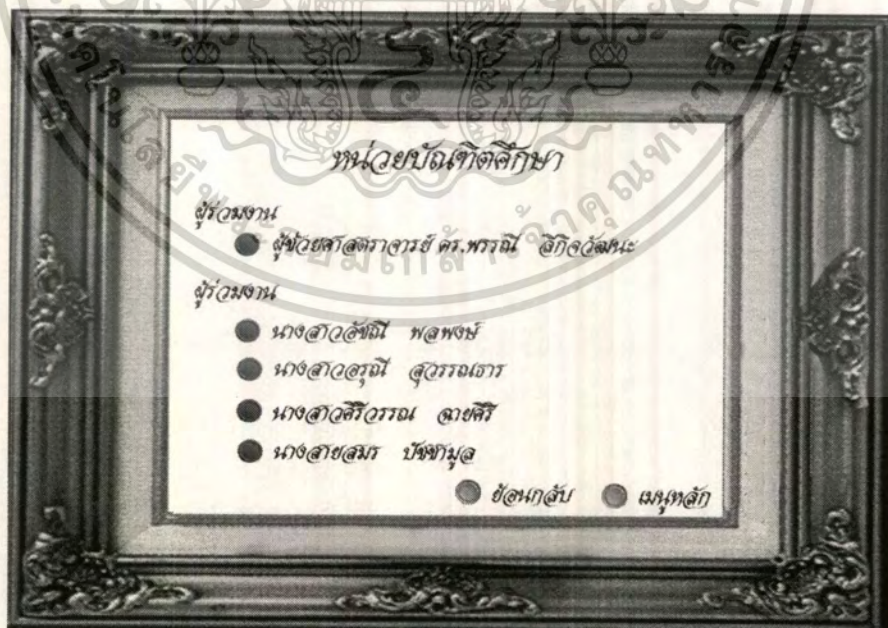 หน่วยบัณฑิตศึกษา
ผู้ร่วมงาน
ผู้ช่วยศาสตราจารย์ ดร.พรรณี ลีกิจวัฒนะ
ผู้ร่วมงาน
นางสาวอัชณี พลพงษ์
นางสาวอรุณี สุวรรณธาร
นางสาวศิริวรรณ ฉายศิริ
นางสายสมร ปัชชามูล
ย้อนกลับ เมนูหลัก